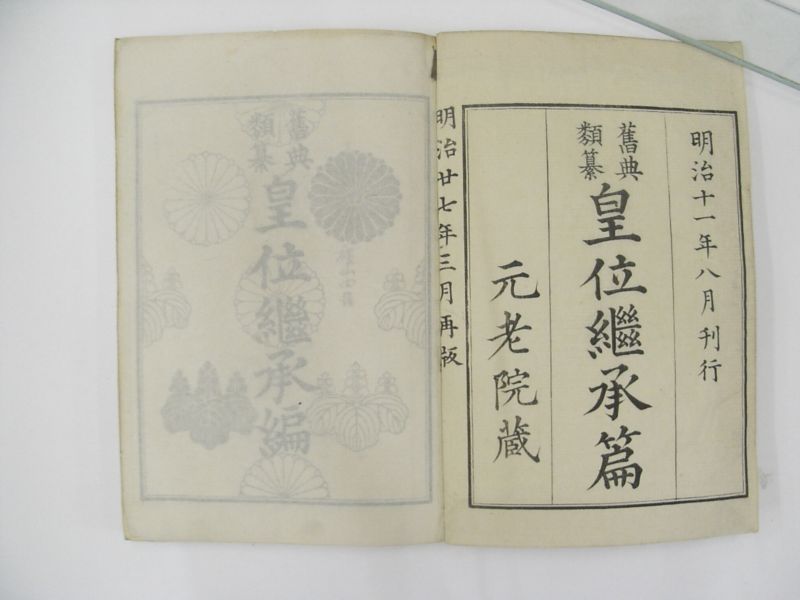 明治十一年八月刊行
舊典
類纂
皇位繼承篇
元老院蔵
明治廿七年三月再版
舊典
類纂
皇位繼承編